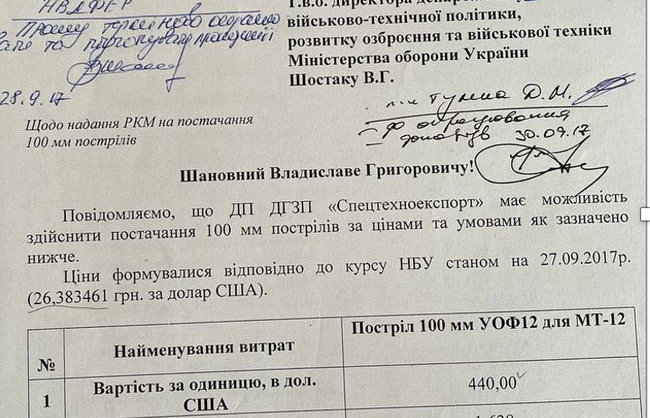 Прошу терміново
28.9.17
Т.в.о. директора
військово-технічної політики,
розвитку озброєння та військової техніки
Міністерства оборони України
Шостаку В.Г.
30.09.17
Щодо надання РКМ на постачання
100 мм пострілів
Шановний Владиславе Григоровичу!
Повідомляємо, що ДП ДГЗП «Спецтехноекспорт» має можливість
здійснити постачання 100 мм пострілів за цінами та умовами як зазначено
нижче.
Ціни формувалися відповідно до курсу НБУ станом на 27.09.2017р.
(26,383461 грн. за долар США).
№ Найменування витрат Постріл 100 мм УОФ12 для МТ-12
1 Вартість за одиницю, в дол. США 440,00